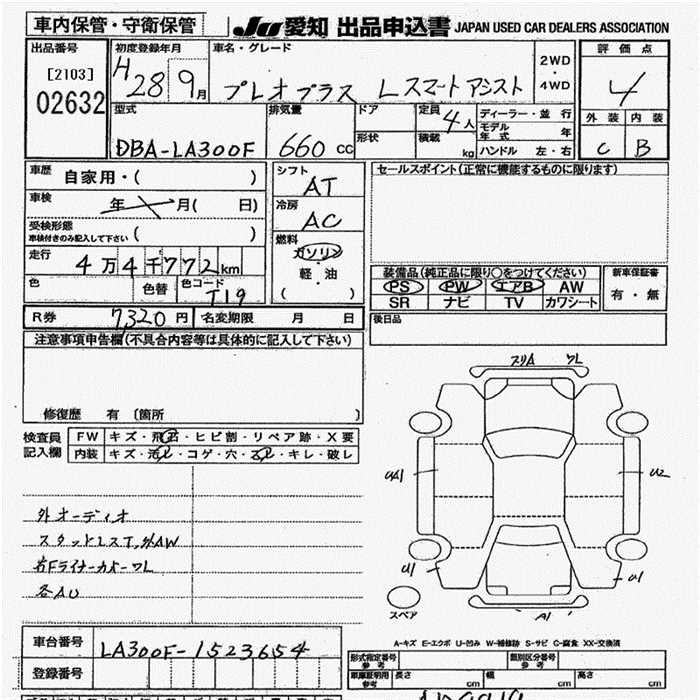 車内保管・守衛保管 JU 愛知 出品申込書 JAPAN USED CAR DEALERS ASSOCIATION
出品番号 初度登録年月 車名・グレード 2WD・4WD 評価点
[2103] H28 9月 プレオプラス Lスマートアシスト 4
02632
型式 排気量 ドア 定員 4人 ディーラー・並行 外装 内装
DBA-LA300F 660cc 形状 積載 kg モデル年式 年 C B
ハンドル 左・右
車歴 自家用・( ) シフト AT セールスポイント(正常に機能するものに限ります)
車検 年 月( 日) 冷房 AC
受検形態 車検付きのみ記入して下さい ( ) 燃料 ガソリン
走行 4万4千772km 軽・油 ( )
装備品(純正品に限り○をつけてください) 新車保証書
PS PW エアB AW 有・無
SR ナビ TV カワシート
色 色替 色コード T19
R券 7320円 名変期限 月 日 後日品
注意事項申告欄(不具合内容等は具体的に記入して下さい)
修復歴 有 〔箇所 〕
検査員記入欄 FW キズ・飛石・ヒビ割・リペア跡・X要
内装 キズ・汚レ・コゲ・穴・スレ・キレ・破レ
外オーディオ
スタッドレスT,外AW
右Fライナーカバーワレ
各AU
スリA ワレ
UA1 U2
U1 U1
A1
スペア
A-キズ E-エクボ U-凹み W-補修跡 S-サビ C-腐食 XX-交換済
車台番号 LA300F-1523654
登録番号
形式指定番号 参考 類別区分番号 参考
車庫証明用 参考 長さ cm 幅 cm 高さ cm